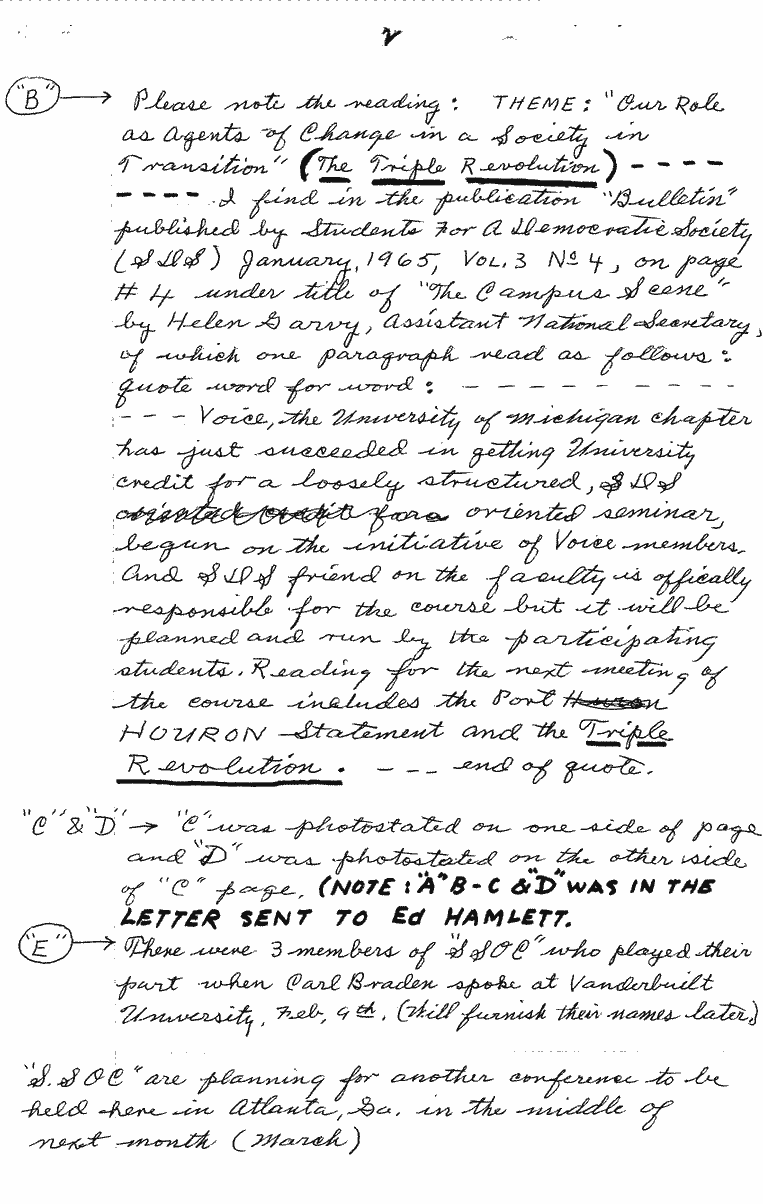 2
"B" → Please note the reading: THEME: "Our Role
as Agents of Change in a Society in
Transition" (The Triple Revolution) ----
---- I find in the publication "Bulletin"
published by Students For A Democratic Society
(SDS) January, 1965, Vol. 3 Nº 4, on page
# 4 under title of "The Campus Scene"
by Helen Garvy, Assistant National Secretary,
of which one paragraph read as follows:
quote word for word: - - - - - - - - -
- - - Voice, the University of Michigan chapter
has just succeeded in getting University
credit for a loosely structured, SDS
oriented seminar,
begun on the initiative of Voice members.
And SDS friend on the faculty is offically
responsible for the course but it will be
planned and run by the participating
students. Reading for the next meeting of
the course includes the Port Huron
HOURON Statement and the Triple
Revolution. - -- end of quote.
"C" & "D" → "C" was photostated on one side of page
and "D" was photostated on the other side
of "C" page. (NOTE: "A" B - C & "D" WAS IN THE
LETTER SENT TO Ed HAMLETT.
"E" → There were 3 members of "SSOC" who played their
part when Carl Braden spoke at Vanderbuilt
University, Feb, 9th. (Will furnish their names later)
"S.SOC" are planning for another conference to be
held here in Atlanta, Ga. in the middle of
next month (March)